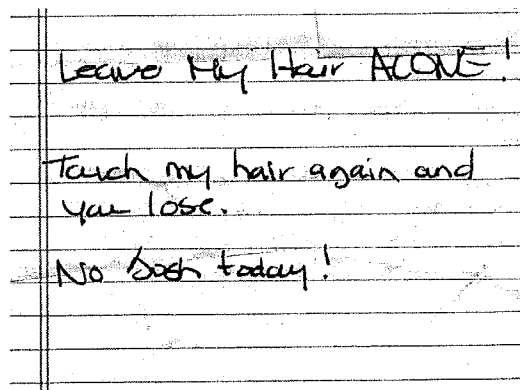 Leave My Hair ALONE!
Touch my hair again and
you lose.
No Dosh today!